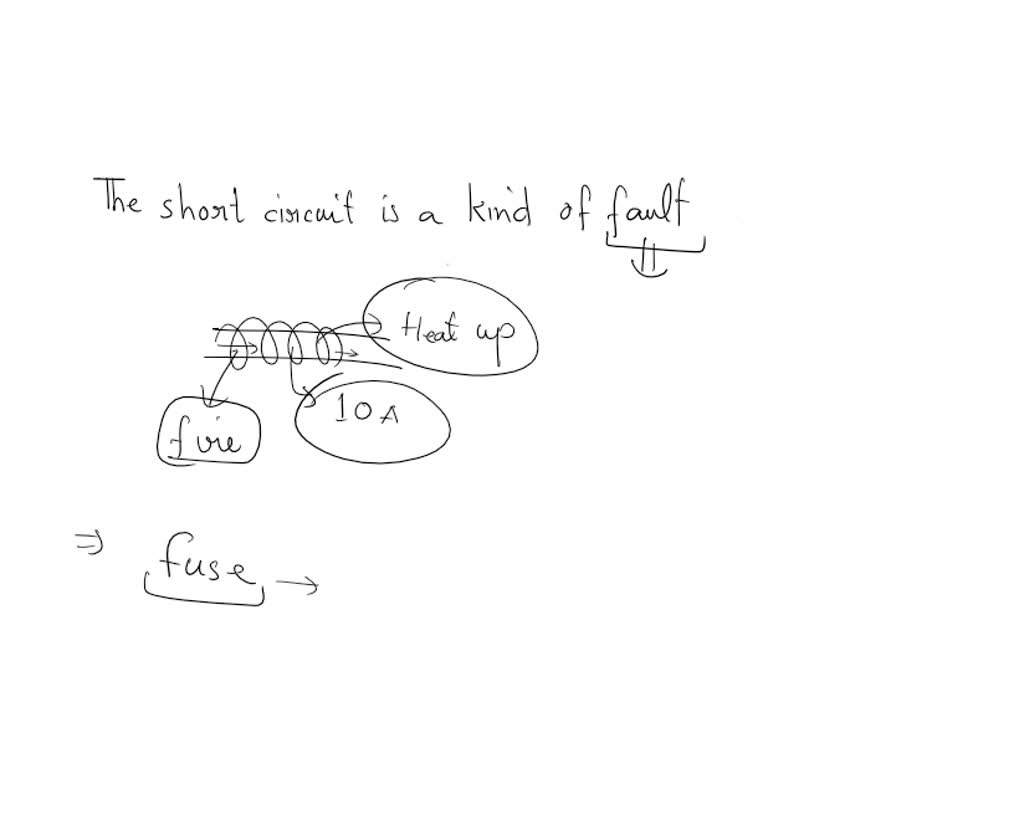 The short circuit is a kind of fault
Heat up
10A
fire
⇒ fuse →